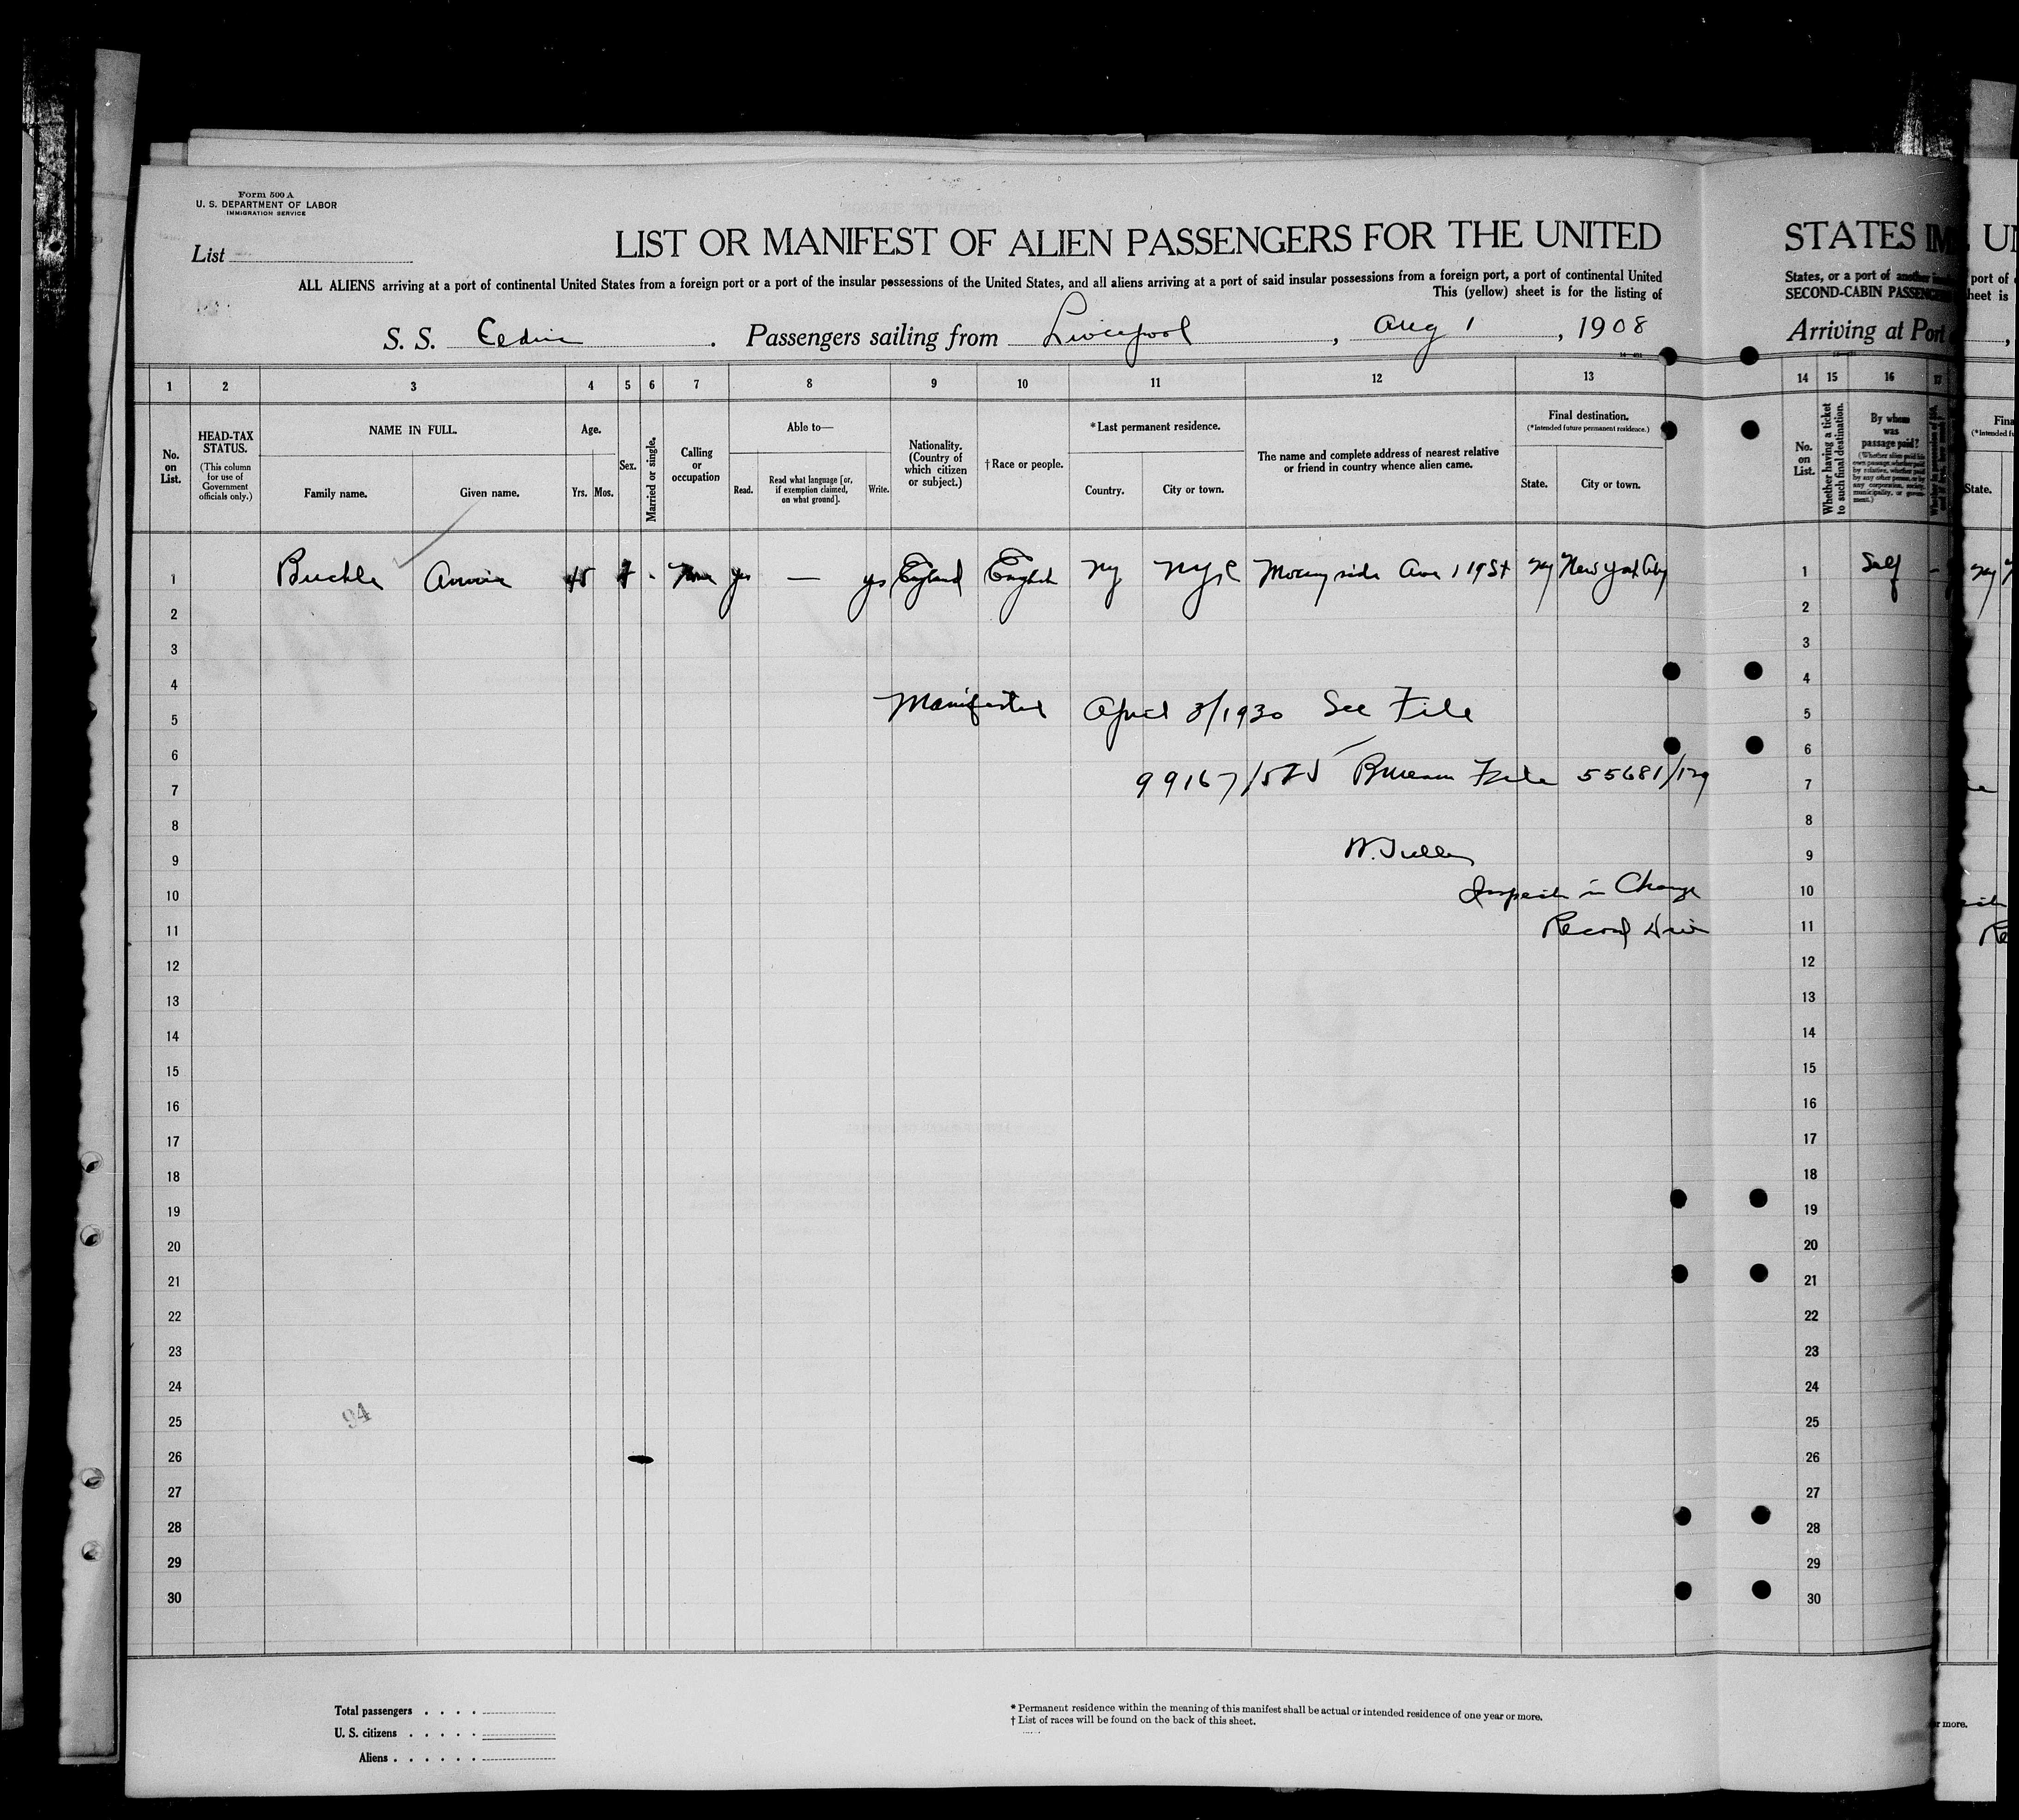 Form 500 A
U. S. DEPARTMENT OF LABOR
IMMIGRATION SERVICE
List
LIST OR MANIFEST OF ALIEN PASSENGERS FOR THE UNITED
STATES IM
ALL ALIENS arriving at a port of continental United States from a foreign port or a port of the insular possessions of the United States, and all aliens arriving at a port of said insular possessions from a foreign port, a port of continental United
States, or a port of another
This (yellow) sheet is for the listing of
SECOND-CABIN PASSENGE
S. S. Cedric . Passengers sailing from Liverpool , Aug 1 , 1908
Arriving at Port
1 2 3 4 5 6 7 8 9 10 11 12 13
14 15 16 17
No. on List.
HEAD-TAX STATUS.
(This column for use of Government officials only.)
NAME IN FULL.
Family name.
Given name.
Age.
Yrs. Mos.
Sex.
Married or single.
Calling or occupation
Able to—
Read.
Read what language [or, if exemption claimed, on what ground].
Write.
Nationality. (Country of which citizen or subject.)
†Race or people.
*Last permanent residence.
Country.
City or town.
The name and complete address of nearest relative or friend in country whence alien came.
Final destination.
(*Intended future permanent residence.)
State.
City or town.
No. on List.
Whether having a ticket to such final destination.
By whom was passage paid?
1 Buckle Annie 45 f - None yes — yes England English NY NYC Morningside Ave 119 St NY New York City
1 Self -
2
3
4
5 Manifested April 3/1930 See File
6
7 99167/525 Bureau File 55681/129
8
9
10 Inspector in Charge
11 Record Div
12
13
14
15
16
17
18
19
20
21
22
23
24
25
94
26
27
28
29
30
Total passengers
U. S. citizens
Aliens
* Permanent residence within the meaning of this manifest shall be actual or intended residence of one year or more.
† List of races will be found on the back of this sheet.